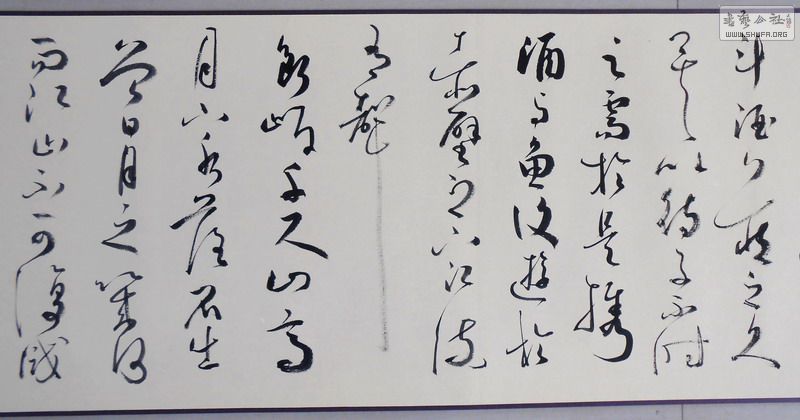 書藝公社
WWW.SHUFA.ORG
斗酒藏之久
矣以待子不時
之需於是攜
酒與魚復遊於
赤壁之下江流
有聲
斷岸千尺山高
月小水落石出
曾日月之幾何
而江山不可復識